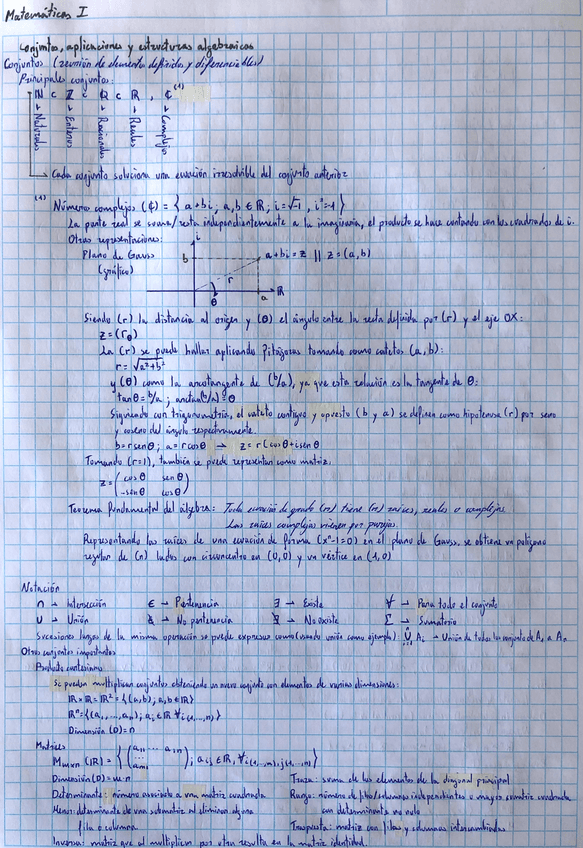 Matemáticas I
Conjuntos, aplicaciones y estructuras algebraicas
Conjuntos (reunión de elemento definidos y diferenciables)
Principales conjuntos:
ℕ ⊂ ℤ ⊂ ℚ ⊂ ℝ, ₵ (1)
Naturales
Enteros
Racionales
Reales
Complejos
Cada conjunto soluciona una ecuación irresolvible del conjunto anterior
(1) Números complejos (₵) = { a+bi ; a,b ∈ ℝ; i=√-1, i²=-1 }
La parte real se suma/resta independientemente a la imaginaria, el producto se hace contando con los cuadrados de i.
Otras representaciones:
Plano de Gauss
(gráfico)
i
b
a+bi = z || z=(a,b)
r
θ
a
ℝ
Siendo (r) la distancia al origen y (θ) el ángulo entre la recta definida por (r) y el eje OX:
z=(r_θ)
La (r) se puede hallar aplicando Pitágoras tomando como catetos (a,b):
r = √a²+b²
y (θ) como la arcotangente de (b/a), ya que esta relación es la tangente de θ:
tan θ = b/a ; arctan(b/a) = θ
Siguiendo con trigonometría, el cateto contiguo y opuesto (b y a) se definen como hipotenusa (r) por seno
y coseno del ángulo respectivamente.
b=r sen θ ; a=r cos θ → z = r(cos θ+i sen θ
Tomando (r=1), también se puede representar como matriz.
z = ( cos θ sen θ
-sen θ cos θ )
Teorema fundamental del álgebra: Toda ecuación de grado (n) tiene (n) raíces, reales o complejas.
Las raíces complejas vienen por parejas.
Representando las raíces de una ecuación de forma (xⁿ-1=0) en el plano de Gauss, se obtiene un polígono
regular de (n) lados con circuncentro en (0,0) y un vértice en (1,0)
Notación
∩ → Intersección ∈ → Pertenencia ∃ → Existe ∀ → Para todo el conjunto
∪ → Unión ∉ → No pertenencia ∄ → No existe Σ → Sumatorio
Sucesiones largas de la misma operación se puede expresar como (usando unión como ejemplo): ⋃ Aᵢ → Unión de todos los conjunto de A₁ a Aₙ
Otros conjuntos importantes
Producto cartesiano
Se pueden multiplicar conjuntos obteniendo un nuevo conjunto con elementos de varias dimensiones:
ℝ×ℝ=ℝ²={(a,b); a,b∈ℝ}
ℝⁿ={(a₁,...,aₙ); aᵢ∈ℝ ∀i(1,...,n)}
Dimensión (D)=n
Matrices
Mmxn (ℝ) = { (a₁₁ ... a₁n) ; aᵢⱼ ∈ ℝ, ∀i(1,...,m), j(1,...,n) }
Dimensión (D)=m·n
Traza: suma de los elementos de la diagonal principal
Determinante: número asociado a una matriz cuadrada
Rango: número de filas/columnas independientes o mayor submatriz cuadrada
Menor: determinante de una submatriz al eliminar alguna
con determinante no nulo
fila o columna
Traspuesta: matriz con filas y columnas intercambiadas
Inversa: matriz que al multiplicar por otra resulta en la matriz identidad.